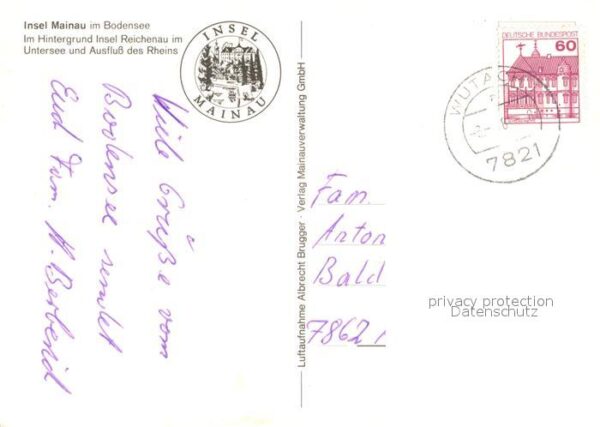 Insel Mainau im Bodensee
Im Hintergrund Insel Reichenau im
Untersee und Ausfluß des Rheins
INSEL
MAINAU
Viele Grüße vom
Bodensee sendet
Euch Fam. H.
Luftaufnahme Albrecht Brugger · Verlag Mainauverwaltung GmbH
60
DEUTSCHE BUNDESPOST
7821
Fam.
Anton
Bald
7862
privacy protection
Datenschutz